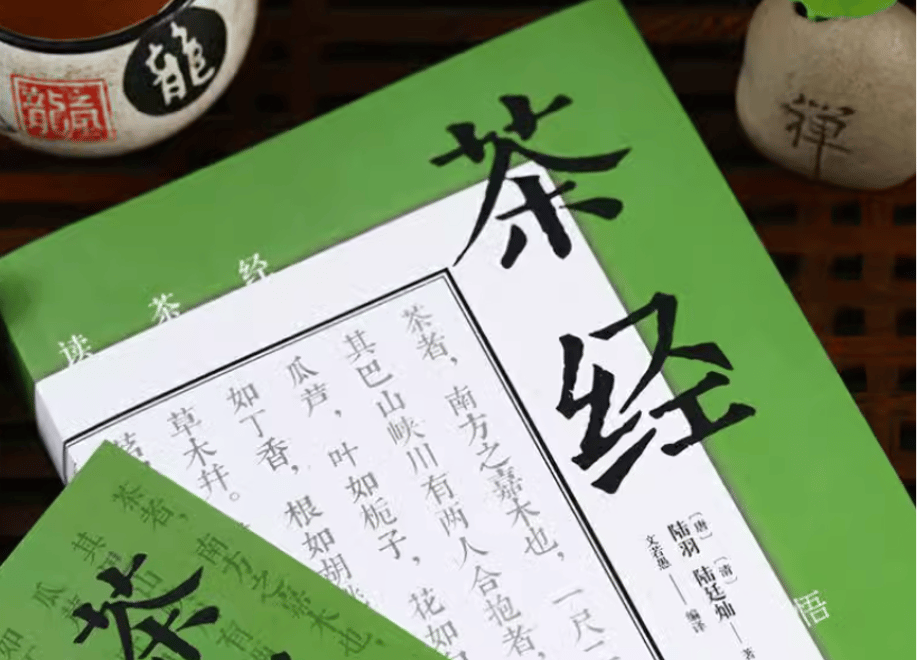 龍
禅
茶经
读茶经
悟
[唐]陆羽
[清]陆廷灿——著
文若愚——编译
茶者，南方之嘉木也，一尺二
其巴山峡川有两人合抱者，
瓜芦，叶如栀子，花如
如丁香，根如胡
草木并。
茶
茶者，
南方之嘉木也
其
山
瓜
有
如